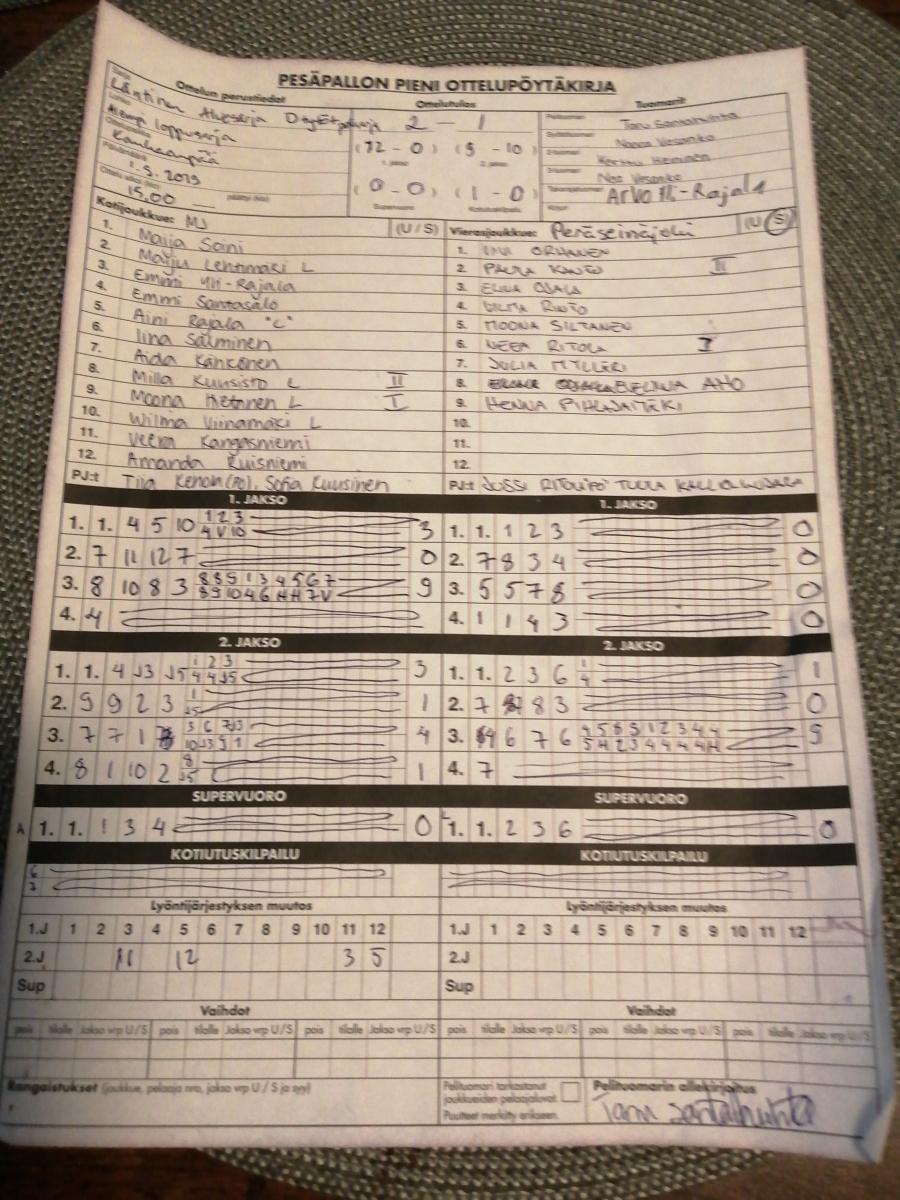 PESÄPALLON PIENI OTTELUPÖYTÄKIRJA
Ottelun perustiedot
Läntinen Aluesarja D-tytöt
loppusarja
Kankaanpää
1.9.2019
15.00
Ottelutulos
2 - 1
(12 - 0) (9 - 10)
(0 - 0) (1 - 0)
Tuomarit
Taru Santahuhta
Noora Vesanko
Kerttu
Nea Vesanko
Arvo Yl.-Rajala
Kotijoukkue: MJ (U/S)
1. Maija Soini
2. Maiju Lehtimäki L
3. Emmi Yli-Rajala
4. Emmi Santasalo
5. Aini Rajala "C"
6. Iina Salminen
7. Aida Kankonen
8. Milla Kuusisto L II
9. Moona Hietanen L I
10. Wilma Viinamäki L
11. Veera Kangasniemi
12. Amanda Ruisniemi
PJ:t Tiia (PJ), Sofia Kuusinen
Vierasjoukkue: Peräseinäjoki (U/S)
1.
2. PAULA II
3. ELINA OJALA
4. VILMA RINTO
5. MOONA SILTANEN
6. NEEA RITOLA I
7. JULIA MYLLÄRI
8. EVELIINA AHO
9. HENNA PIHLAJAMÄKI
10.
11.
12.
PJ:t JUSSI TUULA
1. JAKSO
1. 1. 4 5 10 1 2 3 3
4 V 10
2. 7 11 12 7 0
3. 8 10 8 3 8 8 9 1 3 4 5 6 7 9
8 9 10 4 6 H H 7 V
4. 4
1. JAKSO
1. 1. 1 2 3 0
2. 7 8 3 4 0
3. 5 5 7 8 0
4. 1 1 4 3 0
2. JAKSO
1. 1. 4 J3 J5 1 2 3 3
4 4 J5
2. 9 9 2 3 1 1
J5
3. 7 7 1 3 6 7 J3 4
10 J3 9 1
4. 8 1 10 2 8 1
J5
2. JAKSO
1. 1. 2 3 6 1 1
4
2. 7 8 3 0
3. 6 7 6 4 5 8 9 1 2 3 4 4 9
5 H 2 3 4 4 4 4 H
4. 7
SUPERVUORO
A 1. 1. 1 3 4 0
SUPERVUORO
1. 1. 2 3 6 0
KOTIUTUSKILPAILU
KOTIUTUSKILPAILU
Lyöntijärjestyksen muutos
1.J 1 2 3 4 5 6 7 8 9 10 11 12
2.J 11 12 3 5
Sup
Lyöntijärjestyksen muutos
1.J 1 2 3 4 5 6 7 8 9 10 11 12
2.J
Sup
Vaihdot
pois tilalle Jakso vrp U/S pois tilalle Jakso vrp U/S pois tilalle Jakso vrp U/S
Vaihdot
pois tilalle Jakso vrp U/S pois tilalle Jakso vrp U/S pois tilalle Jakso vrp U/S
Rangaistukset (joukkue, pelaaja nro, jakso vrp U / S ja syy)
Pelituomari tarkastanut
joukkueiden pelaajaluvat.
Puutteet merkitty erikseen.
Pelituomarin allekirjoitus
Taru Santahuhta